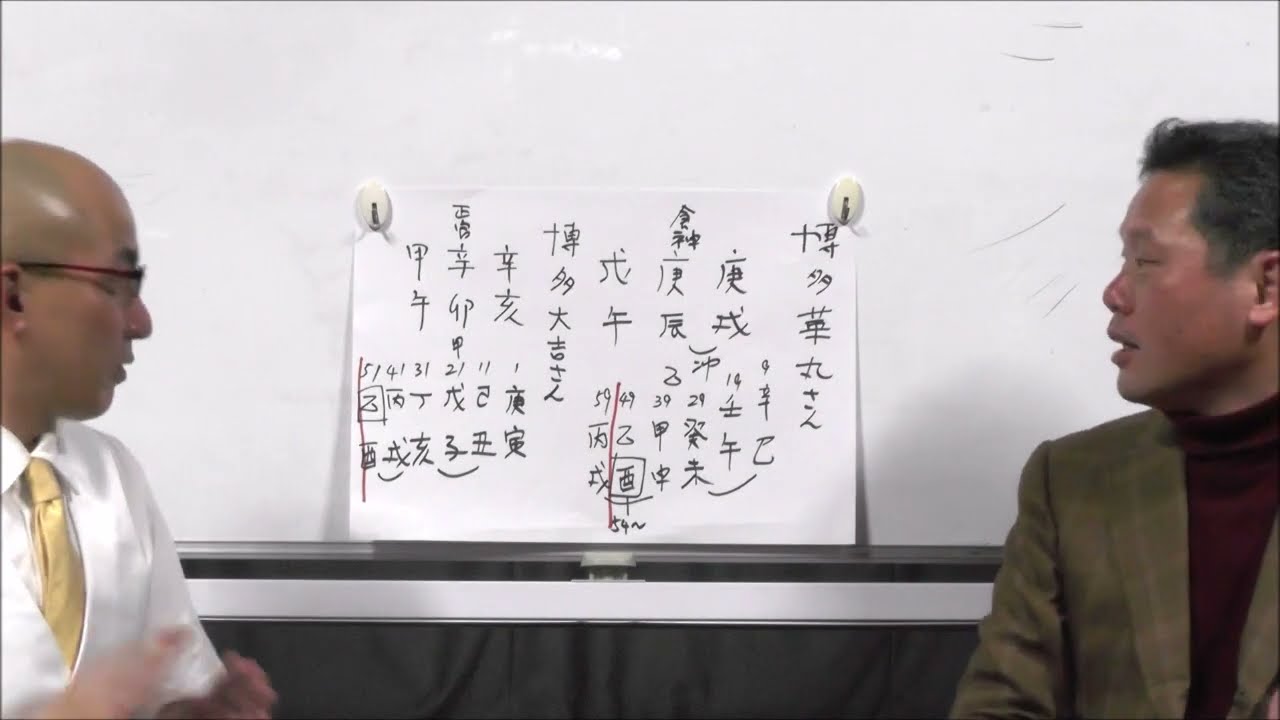 博多華丸さん
庚戌
食神
庚辰
乙
冲
戊午
9辛巳
19壬午
29癸未
39甲申
49乙酉
54〜
59丙戌
博多大吉さん
辛亥
正官
辛卯
甲
甲午
1庚寅
11己丑
21戊子
31丁亥
41丙戌
51乙酉